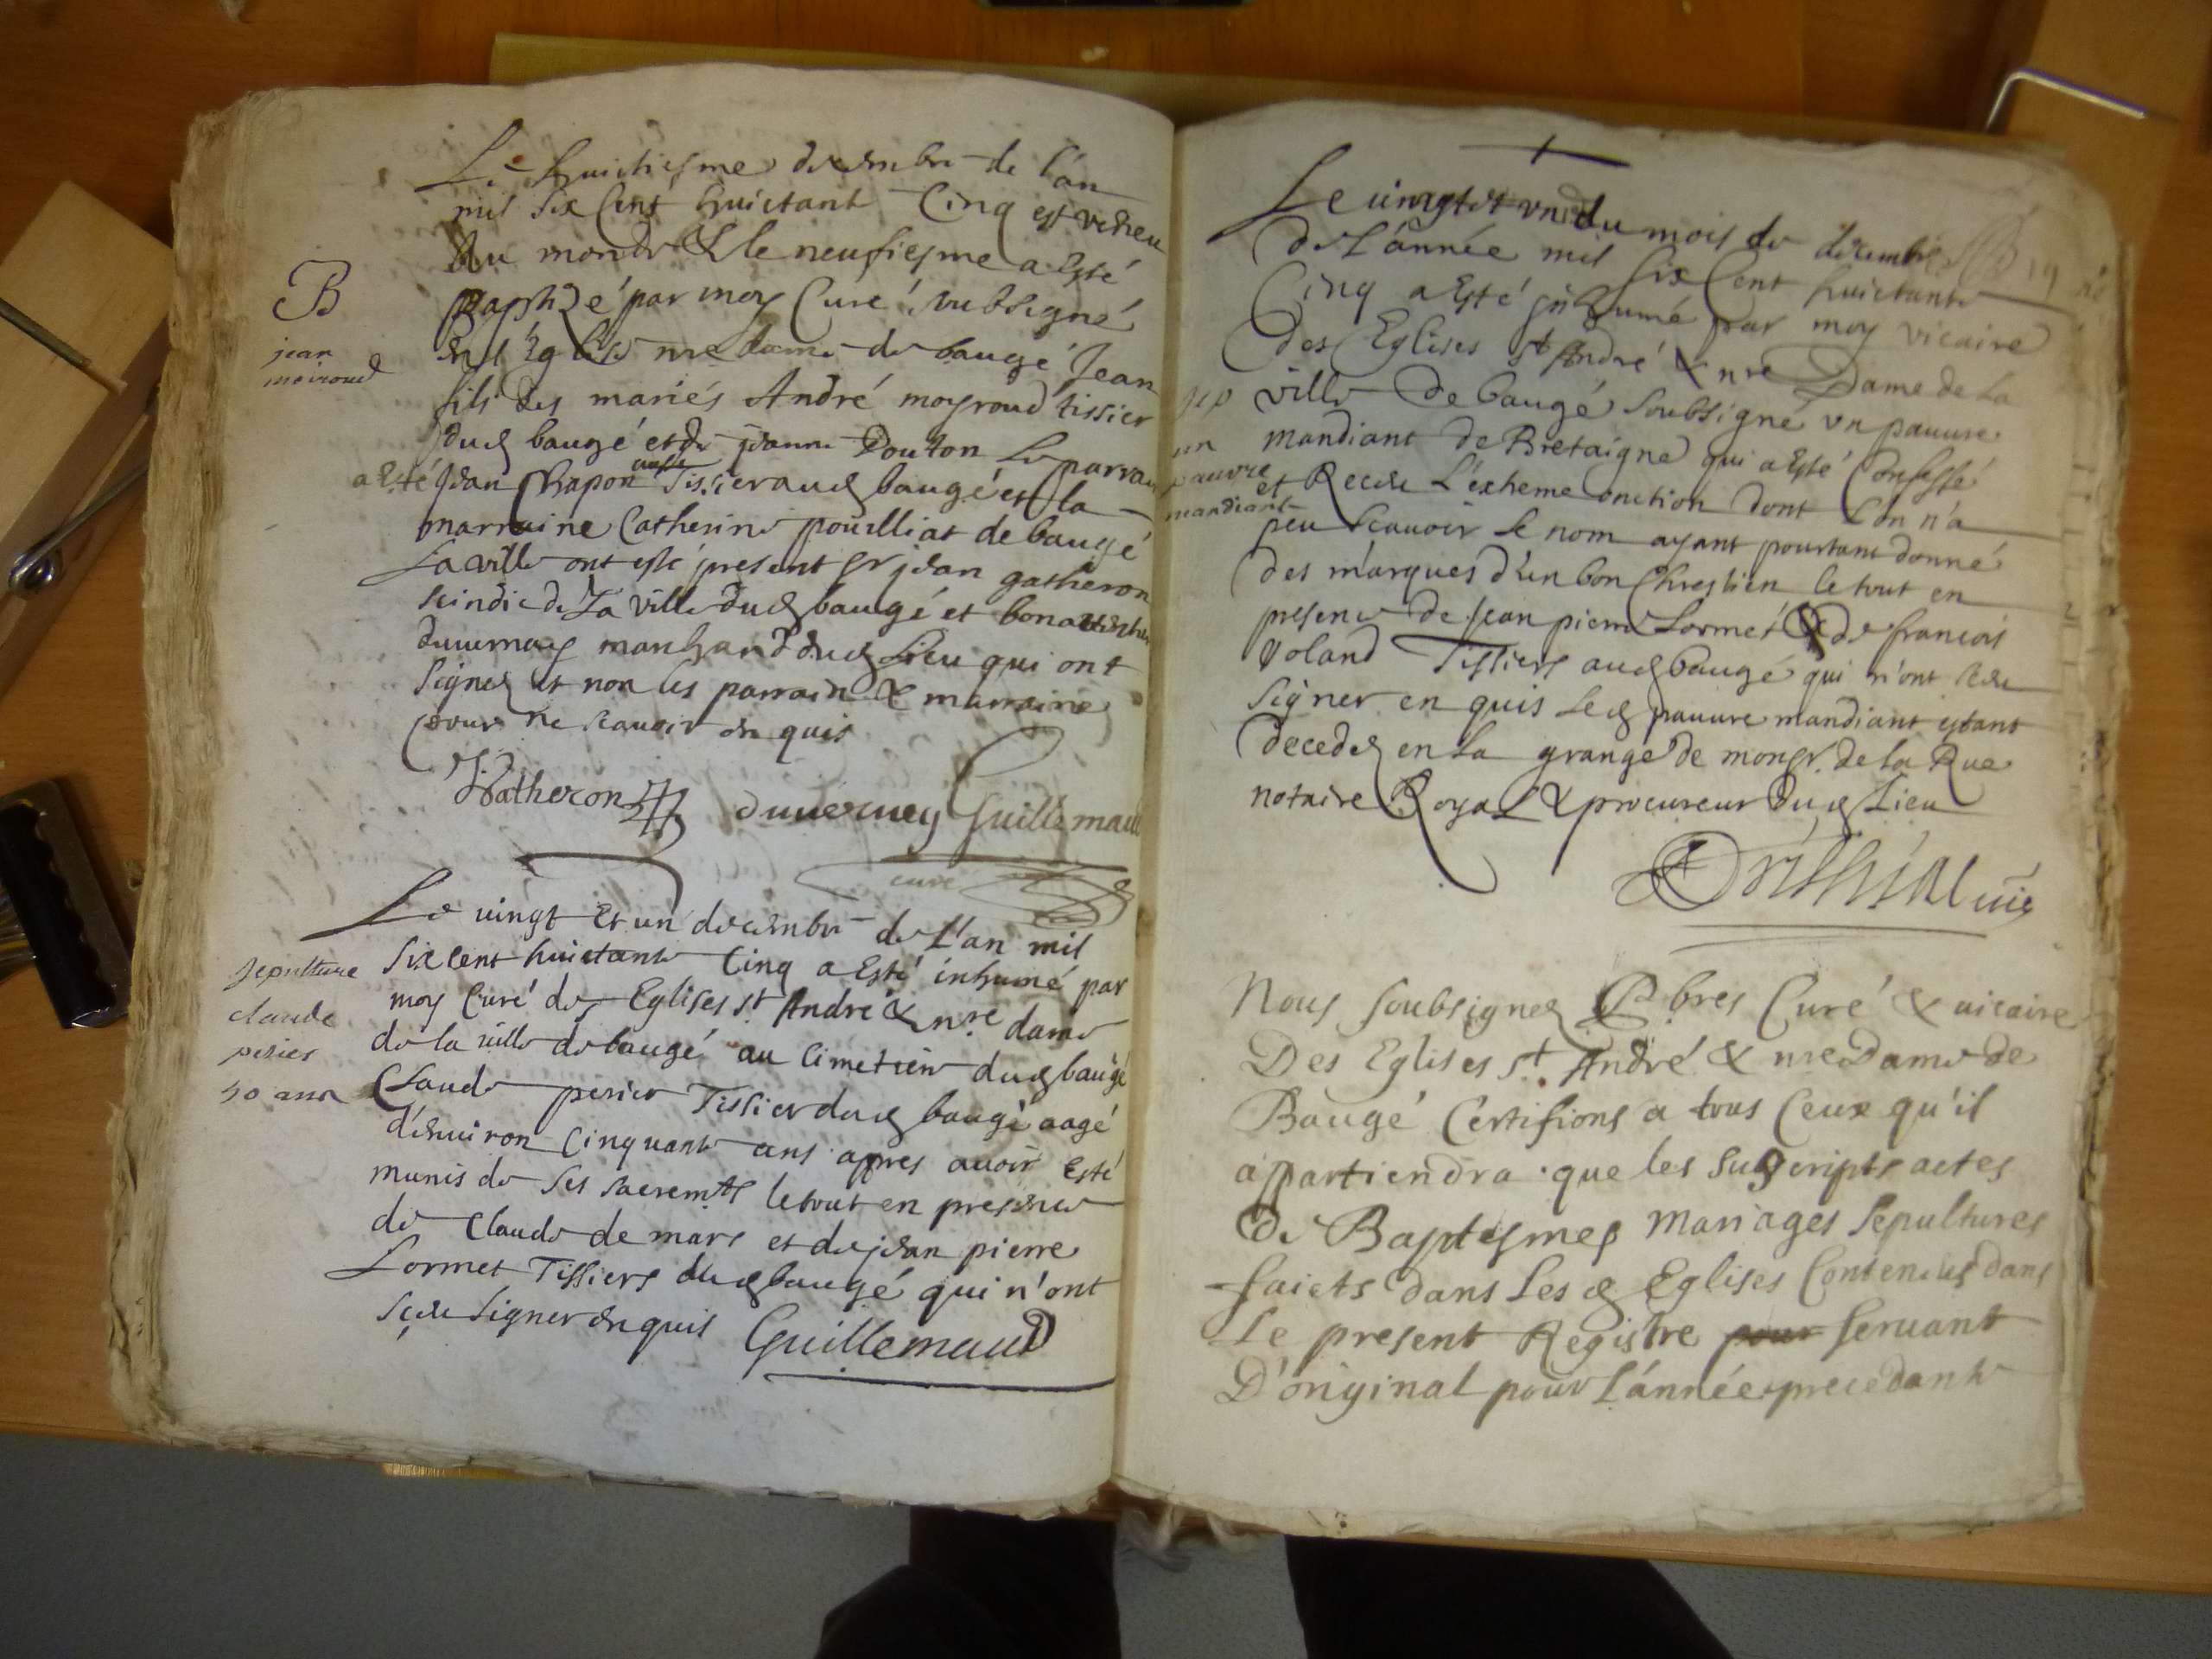 Le huictiesme decembre de l'an
mil six Cent huictante Cinq est venu
Au monde & le neufiesme a Esté
Baptizé par moy Curé soubsigné
En l'Eglise nre dame de baugé Jean
B
jean
moiroud
fils des mariés André moyroud tissier
dud baugé et de jeanne Douton Le parrain
a esté Jean Chapon aussy Tissier aud baugé et la
marraine Catherine pouilliat de baugé
La ville ont esté present Sr jean gatheron
scindic de La ville dud baugé et
duvernay marchand dud Lieu qui ont
signez et non les parrain & marraine
pour ne scauoir en quis
Gatheron duverney Guillemaud
curé
Le vingt et un decembre de L'an mil
six cent huictante Cinq a Esté inhumé par
moy Curé des Eglises st André & nre dame
de la ville de baugé au Cimetiere dud baugé
sepulture
claude
perier
50 ans
Claude perier Tissier dud baugé aagé
d'enuiron Cinquante ans apres auoir Esté
munis de ses sacremts le tout en presence
de Claude de mars et de jean pierre
Lormet Tissiers dud baugé qui n'ont
sceu signer en quis Guillemaud
Le vingt et un du mois de decembre
de L'année mil six Cent huictante
Cinq a Esté inhumé par moy vicaire
des Eglises st André & nre Dame de La
ville de baugé soubsigné vn pauure
sep
un
pauvre
mandiant
mandiant de Bretaigne qui a Esté Confessé
et Receu L'extreme onction dont L'on n'a
peu scauoir le nom ayant pourtant donné
des marques d'un bon Chrestien le tout en
presence de jean pierre Lormet & de francois
Voland Tissiers aud baugé qui n'ont sceu
signer en quis Led pauure mandiant estant
decedez en La grange de monsr. de la Rue
notaire Royal & procureur dud Lieu
vic
Nous soubsignez Pbres Curé & vicaire
Des Eglises st. André & nre Dame de
Baugé Certifions a tous Ceux qu'il
appartiendra que les suscripts actes
de Baptesmes Mariages Sepultures
faicts dans Lesd Eglises Contenues dans
Le present Registre pour seruant
D'original pour L'année precedante